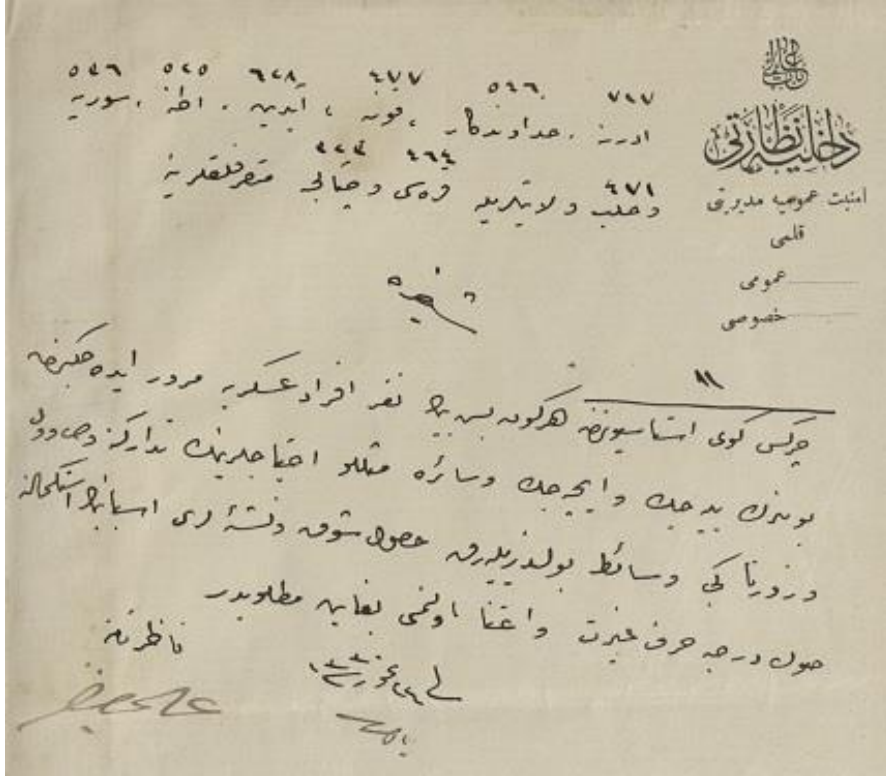 باب عالی
داخلیه نظارتی
امنیت عمومیه مدیریتی
قلمی
عمومی
خصوصی
٧٢٧ ٥٤٦ ٤٧٧ ٦٢٨ ٥٢٥ ٥٤٦
ادرنه ، خداوندکار ، قونیه ، آیدین ، اطنه ، سوریه
٤٧١ ٤٦٤ ٤٢٣
و حلب ولایتلریله قره‌سی و چتالجه متصرفلقلرینه
شفره
چرکس کوی استاسیوننده هرکون بش بیك نفر افراد عسکریه مرور ایده جکندن
بونلرك ییه جك و ایچه جك وسائره مثللو احتیاجلرینك تدارکنه و داوول
و زورنا کبی وسائط بولندیریله‌رق حصول شوق و نشئه لری اسبابنك استکمالنه
صوك درجه صرف غیرت و اعتنا اولنمسی بغایت مطلوبدر
ناظر نامنه